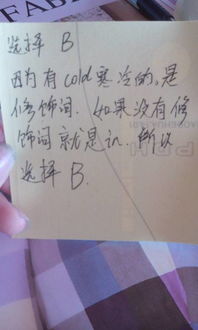 选择 B
因为有 cold 寒冷的,是
修饰词. 如果没有修
饰词 就是 in. 所以
选择 B.